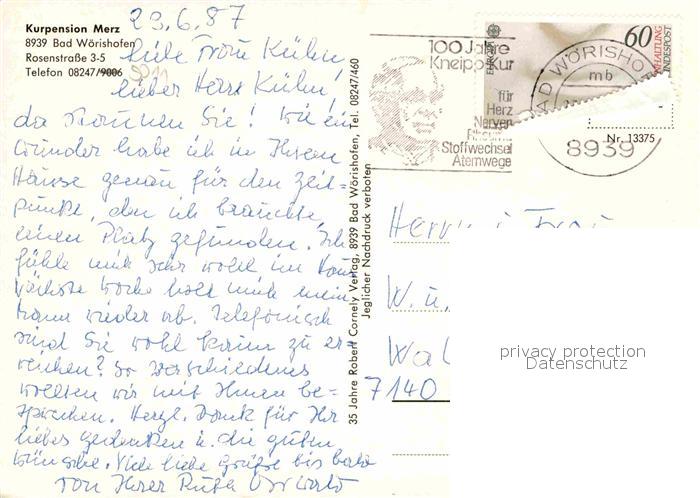 Kurpension Merz
8939 Bad Wörishofen
Rosenstraße 3-5
Telefon 08247/9006
9011
23.6.87
Liebe Frau Kühn,
lieber Herr Kühn,
da staunen Sie! Wie ein
Wunder habe ich in Ihrem
Hause genau für den Zeit=
punkt, den ich brauchte,
einen Platz gefunden. Ich
fühle mich sehr wohl im Haus
Nächste Woche holt mich mein
Mann wieder ab. Telefonisch
sind Sie wohl kaum zu er=
reichen? So verschiedenes
wollten wir mit Ihnen be=
sprechen. Herzl. Dank für Ihr
liebes Gedenken u. die guten
Wünsche. Viele liebe Grüße bis bald
von Ihrer Ruth
35 Jahre Robert Cornely Verlag, 8939 Bad Wörishofen, Tel. 08247/460
Jeglicher Nachdruck verboten
100 Jahre
Kneippkur
für
Herz
Nerven
Rheuma
Stoffwechsel
Atemwege
60
BAD WÖRISHO
mb
8939
Nr. 13375
Herrn u. Frau
W. u.
7140
privacy protection
Datenschutz